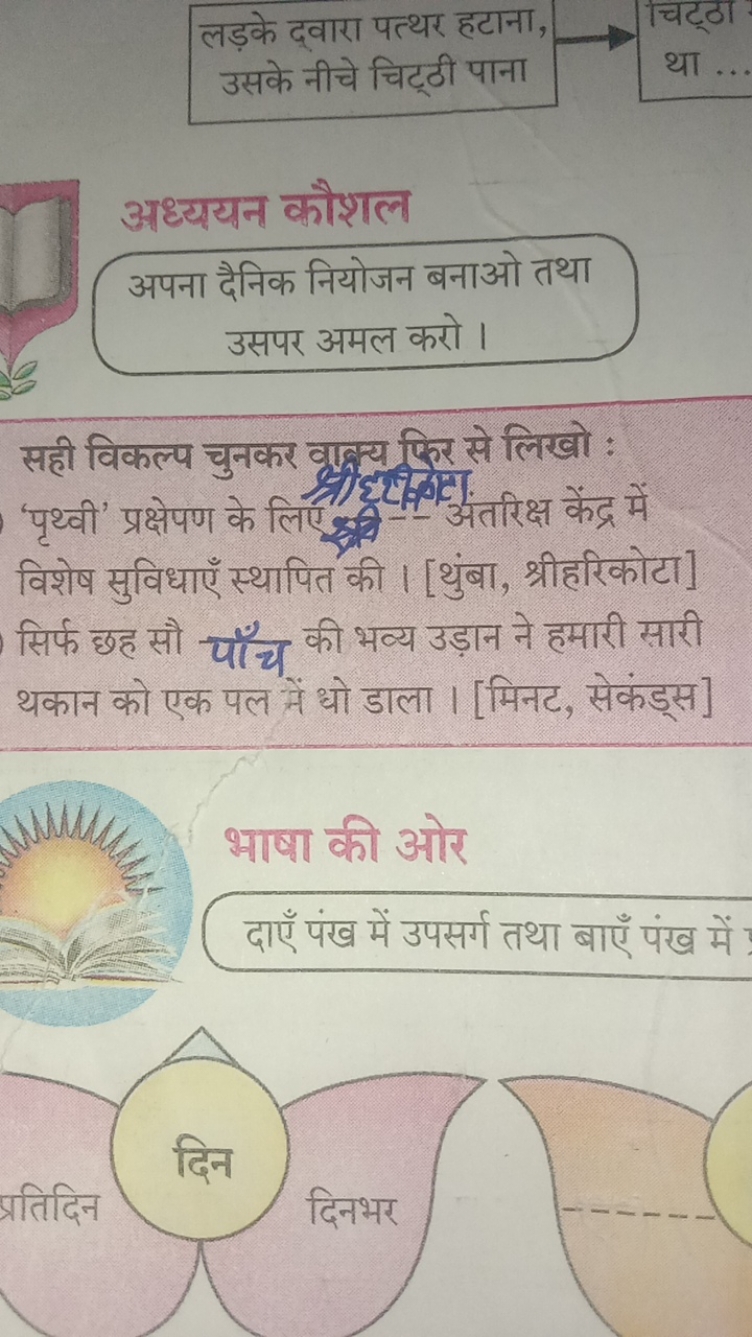 लड़के द्वारा पत्थर हटाना,
उसके नीचे चिट्ठी पाना
चिट्ठी
था ...
अध्ययन कौशल
अपना दैनिक नियोजन बनाओ तथा
उसपर अमल करो ।
सही विकल्प चुनकर वाक्य फिर से लिखो :
श्रीहरीकोटा
'पृथ्वी' प्रक्षेपण के लिए -- अंतरिक्ष केंद्र में
विशेष सुविधाएँ स्थापित की । [थुंबा, श्रीहरिकोटा]
सिर्फ छह सौ पाँच की भव्य उड़ान ने हमारी सारी
थकान को एक पल में धो डाला । [मिनट, सेकंड्स]
भाषा की ओर
दाएँ पंख में उपसर्ग तथा बाएँ पंख में
दिन
प्रतिदिन
दिनभर